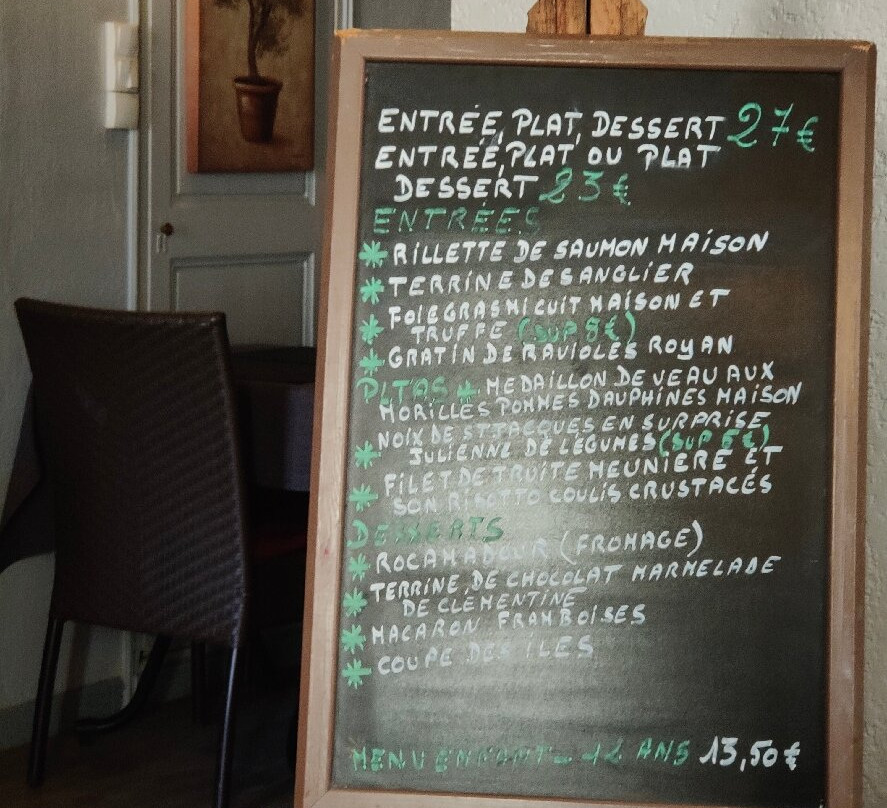 ENTRÉE, PLAT, DESSERT 27€
ENTRÉE, PLAT OU PLAT
DESSERT 23€
ENTRÉES
* RILLETTE DE SAUMON MAISON
* TERRINE DE SANGLIER
* FOIE GRAS MI CUIT MAISON ET
TRUFFE (SUP 8€)
* GRATIN DE RAVIOLES ROYAN
PLTAS * MEDAILLON DE VEAU AUX
MORILLES POMMES DAUPHINES MAISON
* NOIX DE ST JACQUES EN SURPRISE
JULIENNE DE LÉGUMES (SUP 5€)
* FILET DE TRUITE MEUNIERE ET
SON RISOTTO COULIS CRUSTACÉS
DESSERTS
* ROCAMADOUR (FROMAGE)
* TERRINE DE CHOCOLAT MARMELADE
DE CLÉMENTINE
* MACARON FRAMBOISES
* COUPE DES ILES
MENU ENFANT - 12 ANS 13,50€